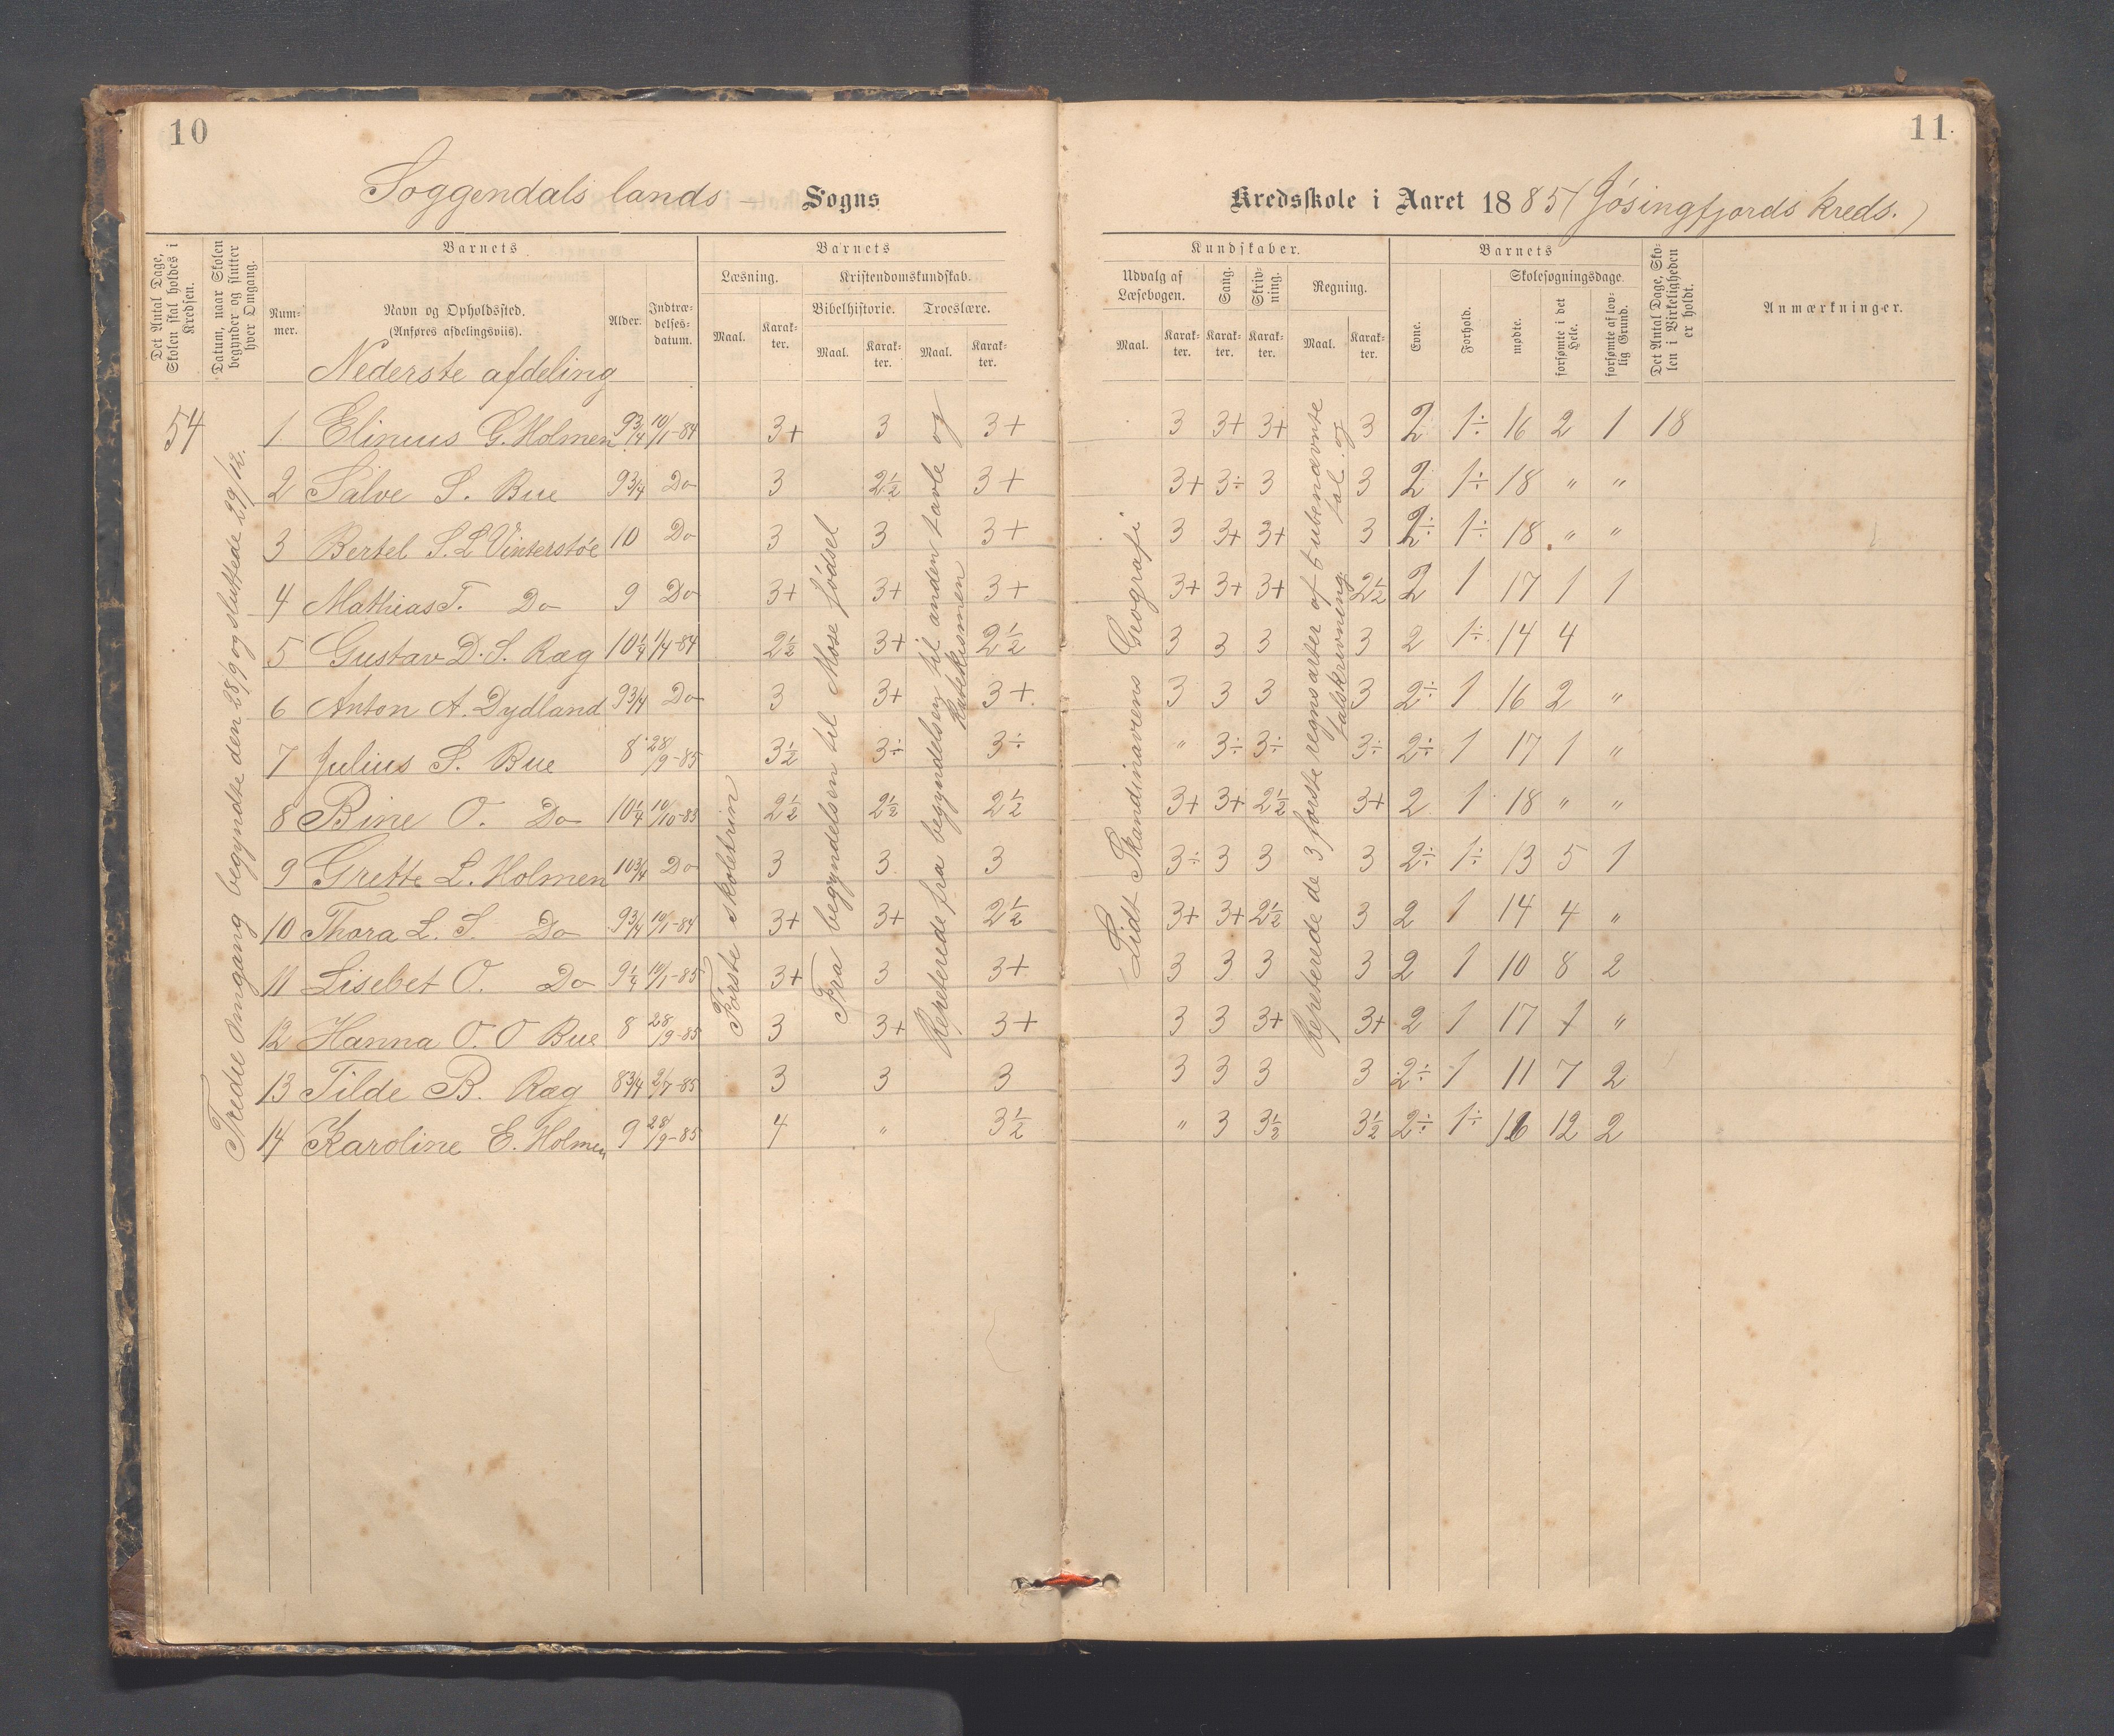 10
11.
Soggendals lands — Sogns
Kredsskole i Aaret 1885 (Jøsingfjords kreds.)
Det Antal Dage, Skolen skal holdes i Kredsen.
Datum, naar Skolen begynder og slutter hver Omgang.
Barnets
Num-
mer.
Navn og Opholdssted.
(Anføres afdelingsviis).
Alder.
Indtræ-
delses-
datum.
Barnets
Læsning.
Maal.
Karak-
ter.
Kristendomskundskab.
Bibelhistorie.
Maal.
Karak-
ter.
Troeslære.
Maal.
Karak-
ter.
Kundskaber.
Udvalg af
Læsebogen.
Maal.
Karak-
ter.
Sang.
Karak-
ter.
Skriv-
ning.
Karak-
ter.
Regning.
Maal.
Karak-
ter.
Barnets
Evne.
Forhold.
Skolesøgningsdage
mødte.
forsømte i det Hele.
forsømte af lov-
lig Grund.
Det Antal Dage, Sko-
len i Virkeligheden
er holdt.
Anmærkninger.
Nederste afdeling
54
Tredie Omgang begyndte den 28/9 og sluttede 29/12.
Første skoletrin
Fra begyndelsen til Mose fødsel
Repeterede fra begyndelsen til anden tavle og
Katekismen
Lidt Skandinaviens Geografi
Repeterede de 3 første regnsarter af 6 ubenævnte tal og
talskrivning.
1 Elinius G. Holmen 9 3/4 10/1-84 3+ 3 3+ 3 3+ 3+ 3 2 1÷ 16 2 1 18
2 Salve S. Bue 9 3/4 Do 3 2½ 3+ 3+ 3÷ 3 3 2 1÷ 18 " "
3 Bertel S. L. Vinterstøe 10 Do 3 3 3+ 3 3+ 3+ 3 2÷ 1÷ 18 " "
4 Mathias T. Do 9 Do 3+ 3+ 3+ 3+ 3+ 3+ 2½ 2 1 17 1 1
5 Gustav D. S. Ræg 10¼ 1/4-84 2½ 3+ 2½ 3 3 3 3 2 1÷ 14 4
6 Anton A. Dydland 9 3/4 Do 3 3+ 3+ 3 3 3 3 2÷ 1 16 2 "
7 Julius S. Bue 8 28/9-85 3½ 3÷ 3÷ " 3÷ 3÷ 3÷ 2÷ 1 17 1 "
8 Bine O. Do 10¼ 10/10-83 2½ 2½ 2½ 3+ 3+ 2½ 3+ 2 1 18 " "
9 Grette L. Holmen 10 3/4 Do 3 3 3 3÷ 3 3 3 2÷ 1÷ 13 5 1
10 Thora L. S. Do 9 3/4 10/1-84 3+ 3+ 2½ 3+ 3+ 2½ 3 2 1 14 4 "
11 Lisebet O. Do 9¼ 10/1-85 3+ 3 3+ 3 3 3 3 2 1 10 8 2
12 Hanna O. O Bue 8 28/9-85 3 3+ 3+ 3 3 3+ 3+ 2 1 17 1 "
13 Tilde B. Ræg 8 3/4 2/7-85 3 3 3 3 3 3 3 2÷ 1 11 7 2
14 Karoline E. Holmen 9 28/9-85 4 " 3½ " 3 3½ 3½ 2÷ 1÷ 12 2